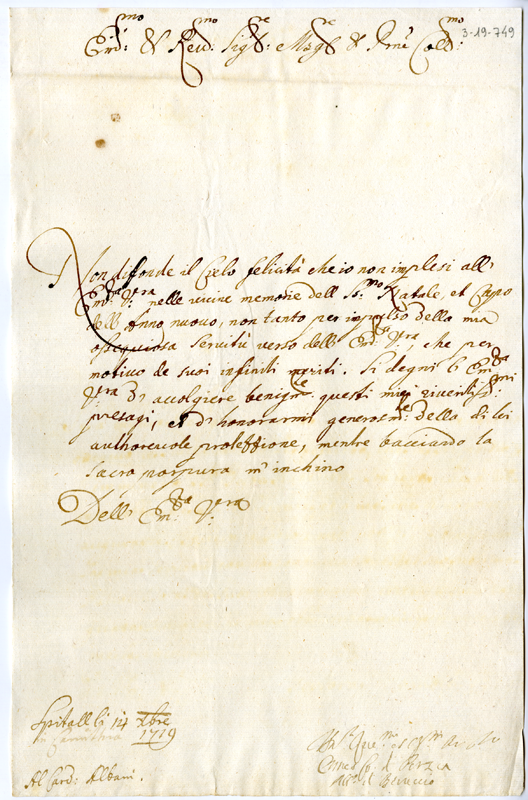 3-19-749
Em:mo & Reu:mo Sig:re Sig:re & Pnē Col:mo
Non diffonde il Cielo felicità che io non implori all'
Em:za V:ra nelle vicine memorie dell SS:mo Natale, et Capo
dell Anno nuovo, non tanto per impulso della mia
ossequiosa seruitù verso dell' Em:za V:ra, che per
motivo de suoi infiniti meriti. Si degni l'Em:za
V:ra d'accolgiere benigm:te questi miei riuentis:mi
presagi, et d'honorarmi generosm:te della di lei
authoreuole protettione, mentre bacciando la
sacra porpura m'inchino
Dell' Em:za V:ra
Spitall li 14 Xbre
1719
Al Card: Albani.